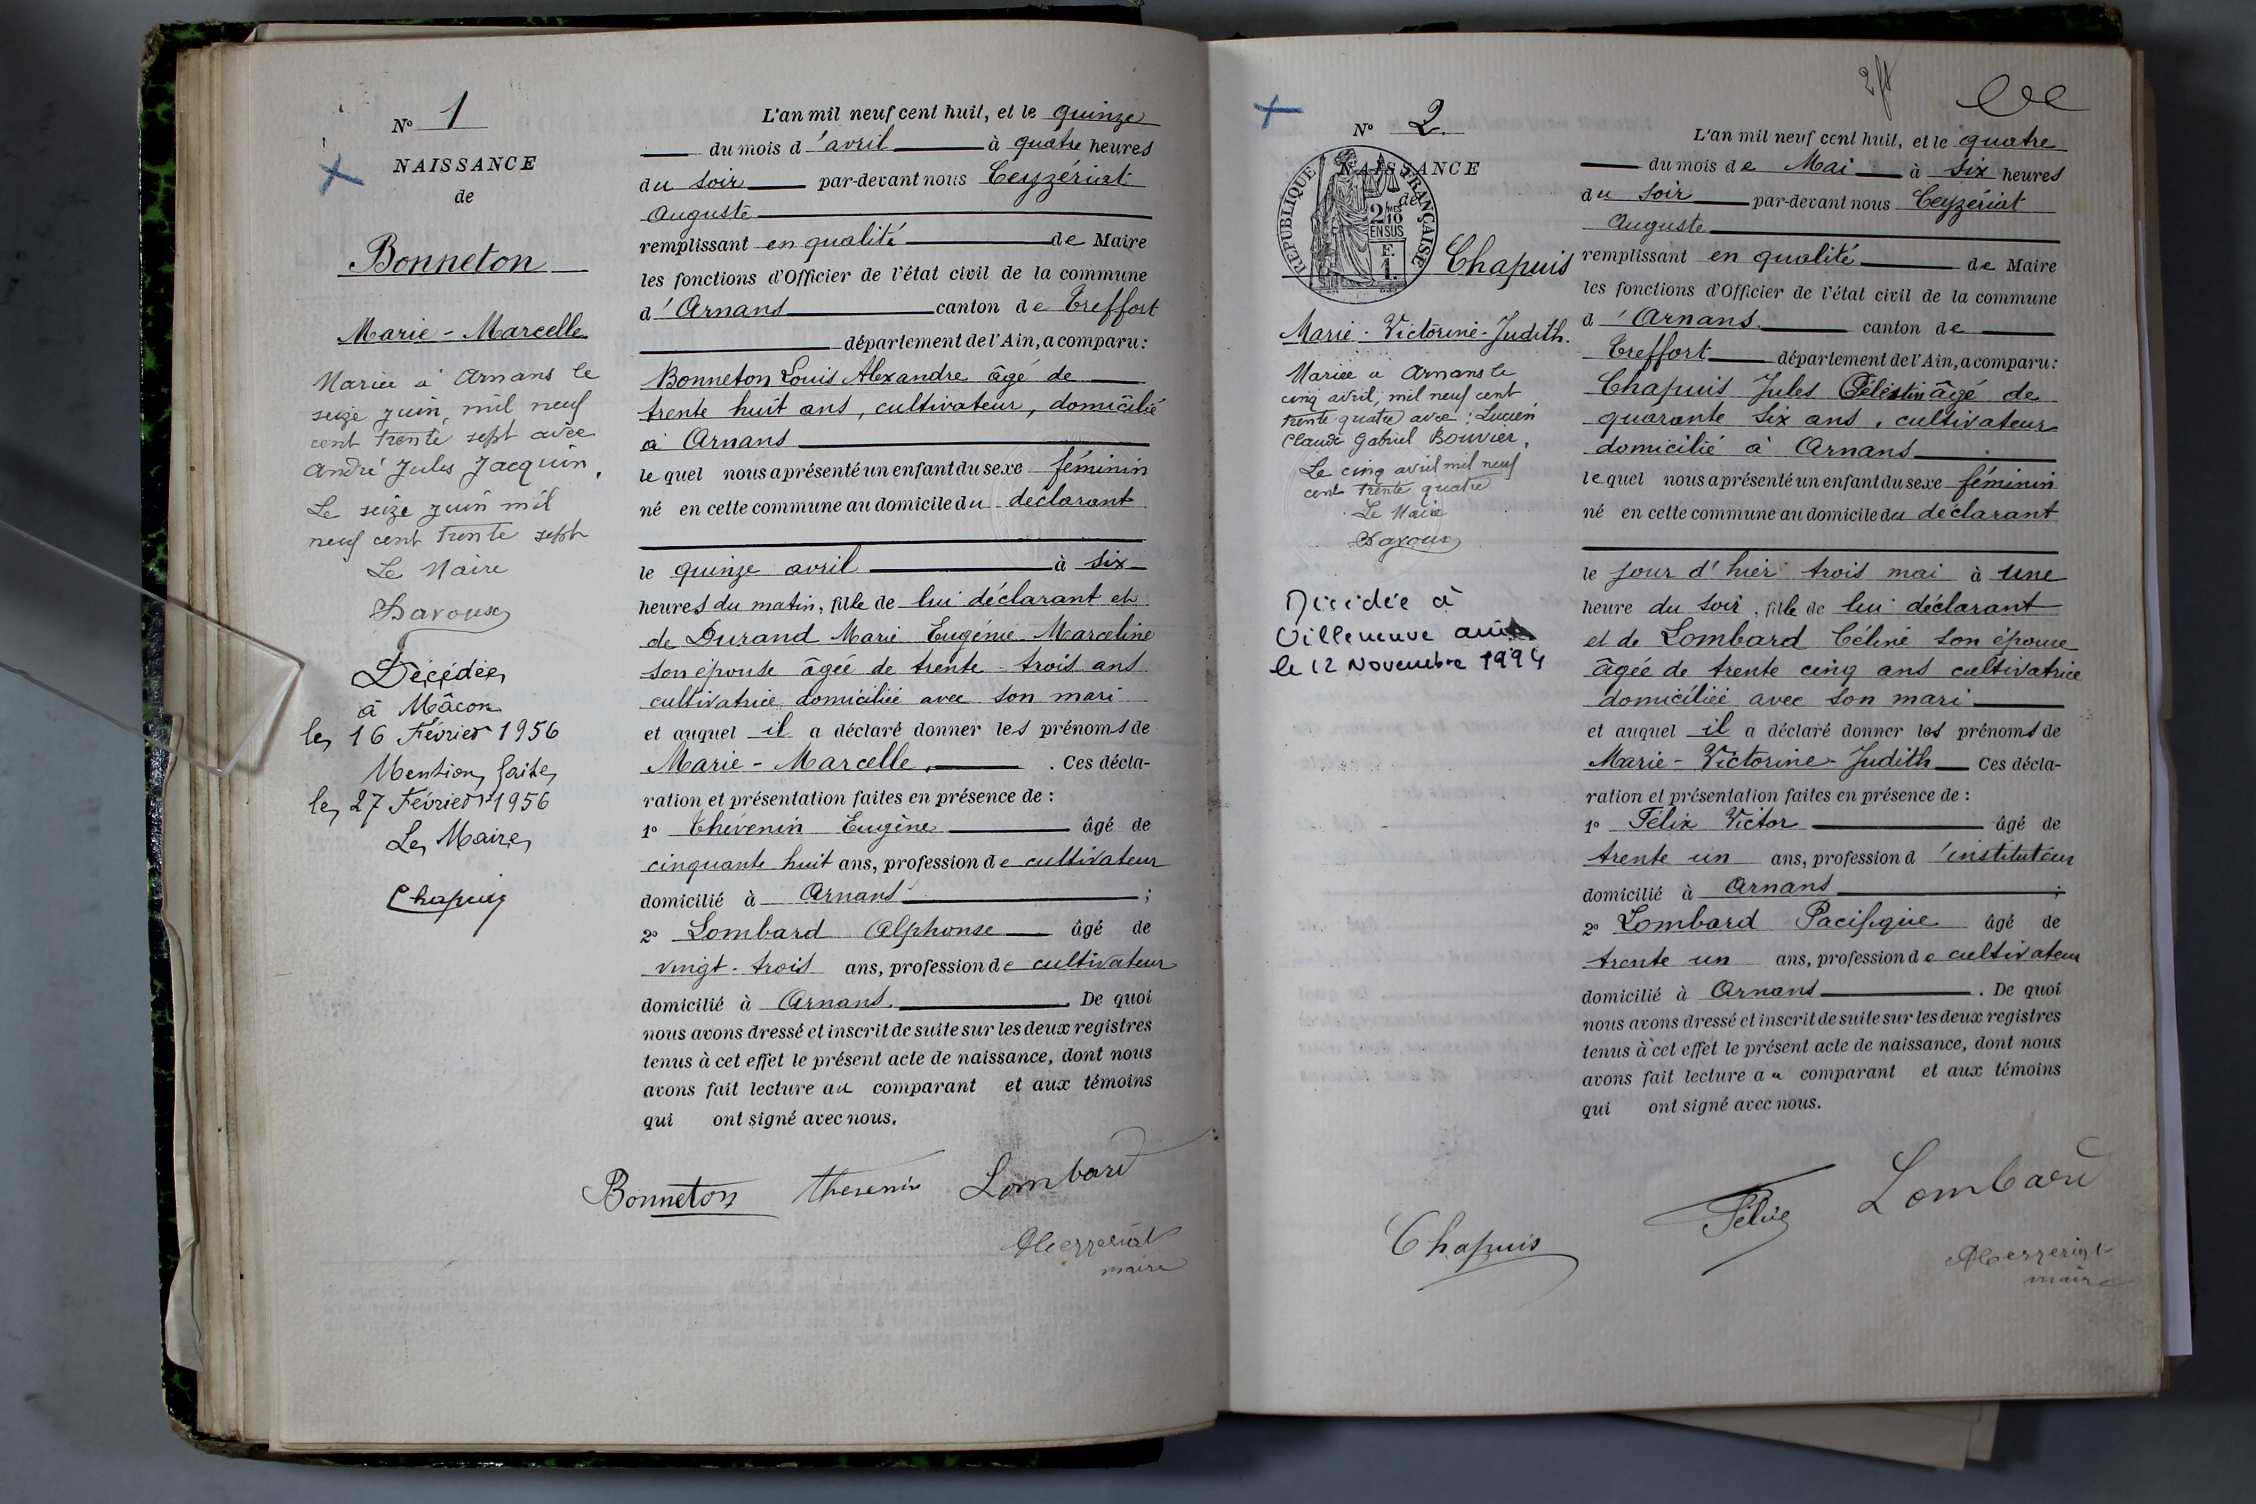 N° 1
NAISSANCE
de
Bonneton
Marie - Marcelle
Mariée à Arnans le
seize juin, mil neuf
cent trente sept avec
André Jules Jacquin.
Le seize juin mil
neuf cent trente sept
Le Maire
Davoux
Décédée
à Mâcon
le 16 Février 1956
Mention faite
le 27 Février 1956
Le Maire
Chapuis
L'an mil neuf cent huit, et le quinze
du mois d'avril à quatre heures
du soir par-devant nous Ceyzériat
Auguste
remplissant en qualité de Maire
les fonctions d'Officier de l'état civil de la commune
d'Arnans canton de Treffort
département de l'Ain, a comparu:
Bonneton Louis Alexandre âgé de
trente huit ans, cultivateur, domicilié
à Arnans
lequel nous a présenté un enfant du sexe féminin
né en cette commune au domicile du déclarant
le quinze avril à six
heures du matin, fille de lui déclarant et
de Durand Marie Eugénie Marceline
son épouse âgée de trente-trois ans
cultivatrice domiciliée avec son mari
et auquel il a déclaré donner les prénoms de
Marie - Marcelle. . Ces décla-
ration et présentation faites en présence de :
1° Thévenin Eugène âgé de
cinquante huit ans, profession de cultivateur
domicilié à Arnans ;
2° Lombard Alphonse âgé de
vingt-trois ans, profession de cultivateur
domicilié à Arnans. De quoi
nous avons dressé et inscrit de suite sur les deux registres
tenus à cet effet le présent acte de naissance, dont nous
avons fait lecture au comparant et aux témoins
qui ont signé avec nous.
Bonneton Thevenin Lombard
ACeyzeriat
maire
N° 2.
NAISSANCE
de
RÉPUBLIQUE FRANÇAISE
2/10
EN SUS
F.
1.
Chapuis
Marie-Victorine-Judith.
Mariée à Arnans le
cinq avril, mil neuf cent
trente quatre avec : Lucien
Claude Gabriel Bouvier.
Le cinq avril mil neuf
cent trente quatre
Le Maire
Davoux
Décédée à
Villeneuve
le 12 Novembre 1994
L'an mil neuf cent huit, et le quatre
du mois de Mai à six heures
du soir par-devant nous Ceyzériat
Auguste
remplissant en qualité de Maire
les fonctions d'Officier de l'état civil de la commune
d'Arnans. canton de
Treffort département de l'Ain, a comparu:
Chapuis Jules Célestin âgé de
quarante six ans, cultivateur
domicilié à Arnans
lequel nous a présenté un enfant du sexe féminin
né en cette commune au domicile du déclarant
le jour d'hier trois mai à une
heure du soir, fille de lui déclarant
et de Lombard Céline son épouse
âgée de trente cinq ans cultivatrice
domiciliée avec son mari
et auquel il a déclaré donner les prénoms de
Marie-Victorine-Judith Ces décla-
ration et présentation faites en présence de :
1° Félix Victor âgé de
trente un ans, profession d'instituteur
domicilié à Arnans ;
2° Lombard Pacifique âgé de
trente un ans, profession de cultivateur
domicilié à Arnans . De quoi
nous avons dressé et inscrit de suite sur les deux registres
tenus à cet effet le présent acte de naissance, dont nous
avons fait lecture au comparant et aux témoins
qui ont signé avec nous.
Chapuis Félix Lombard
ACeyzeriat
maire